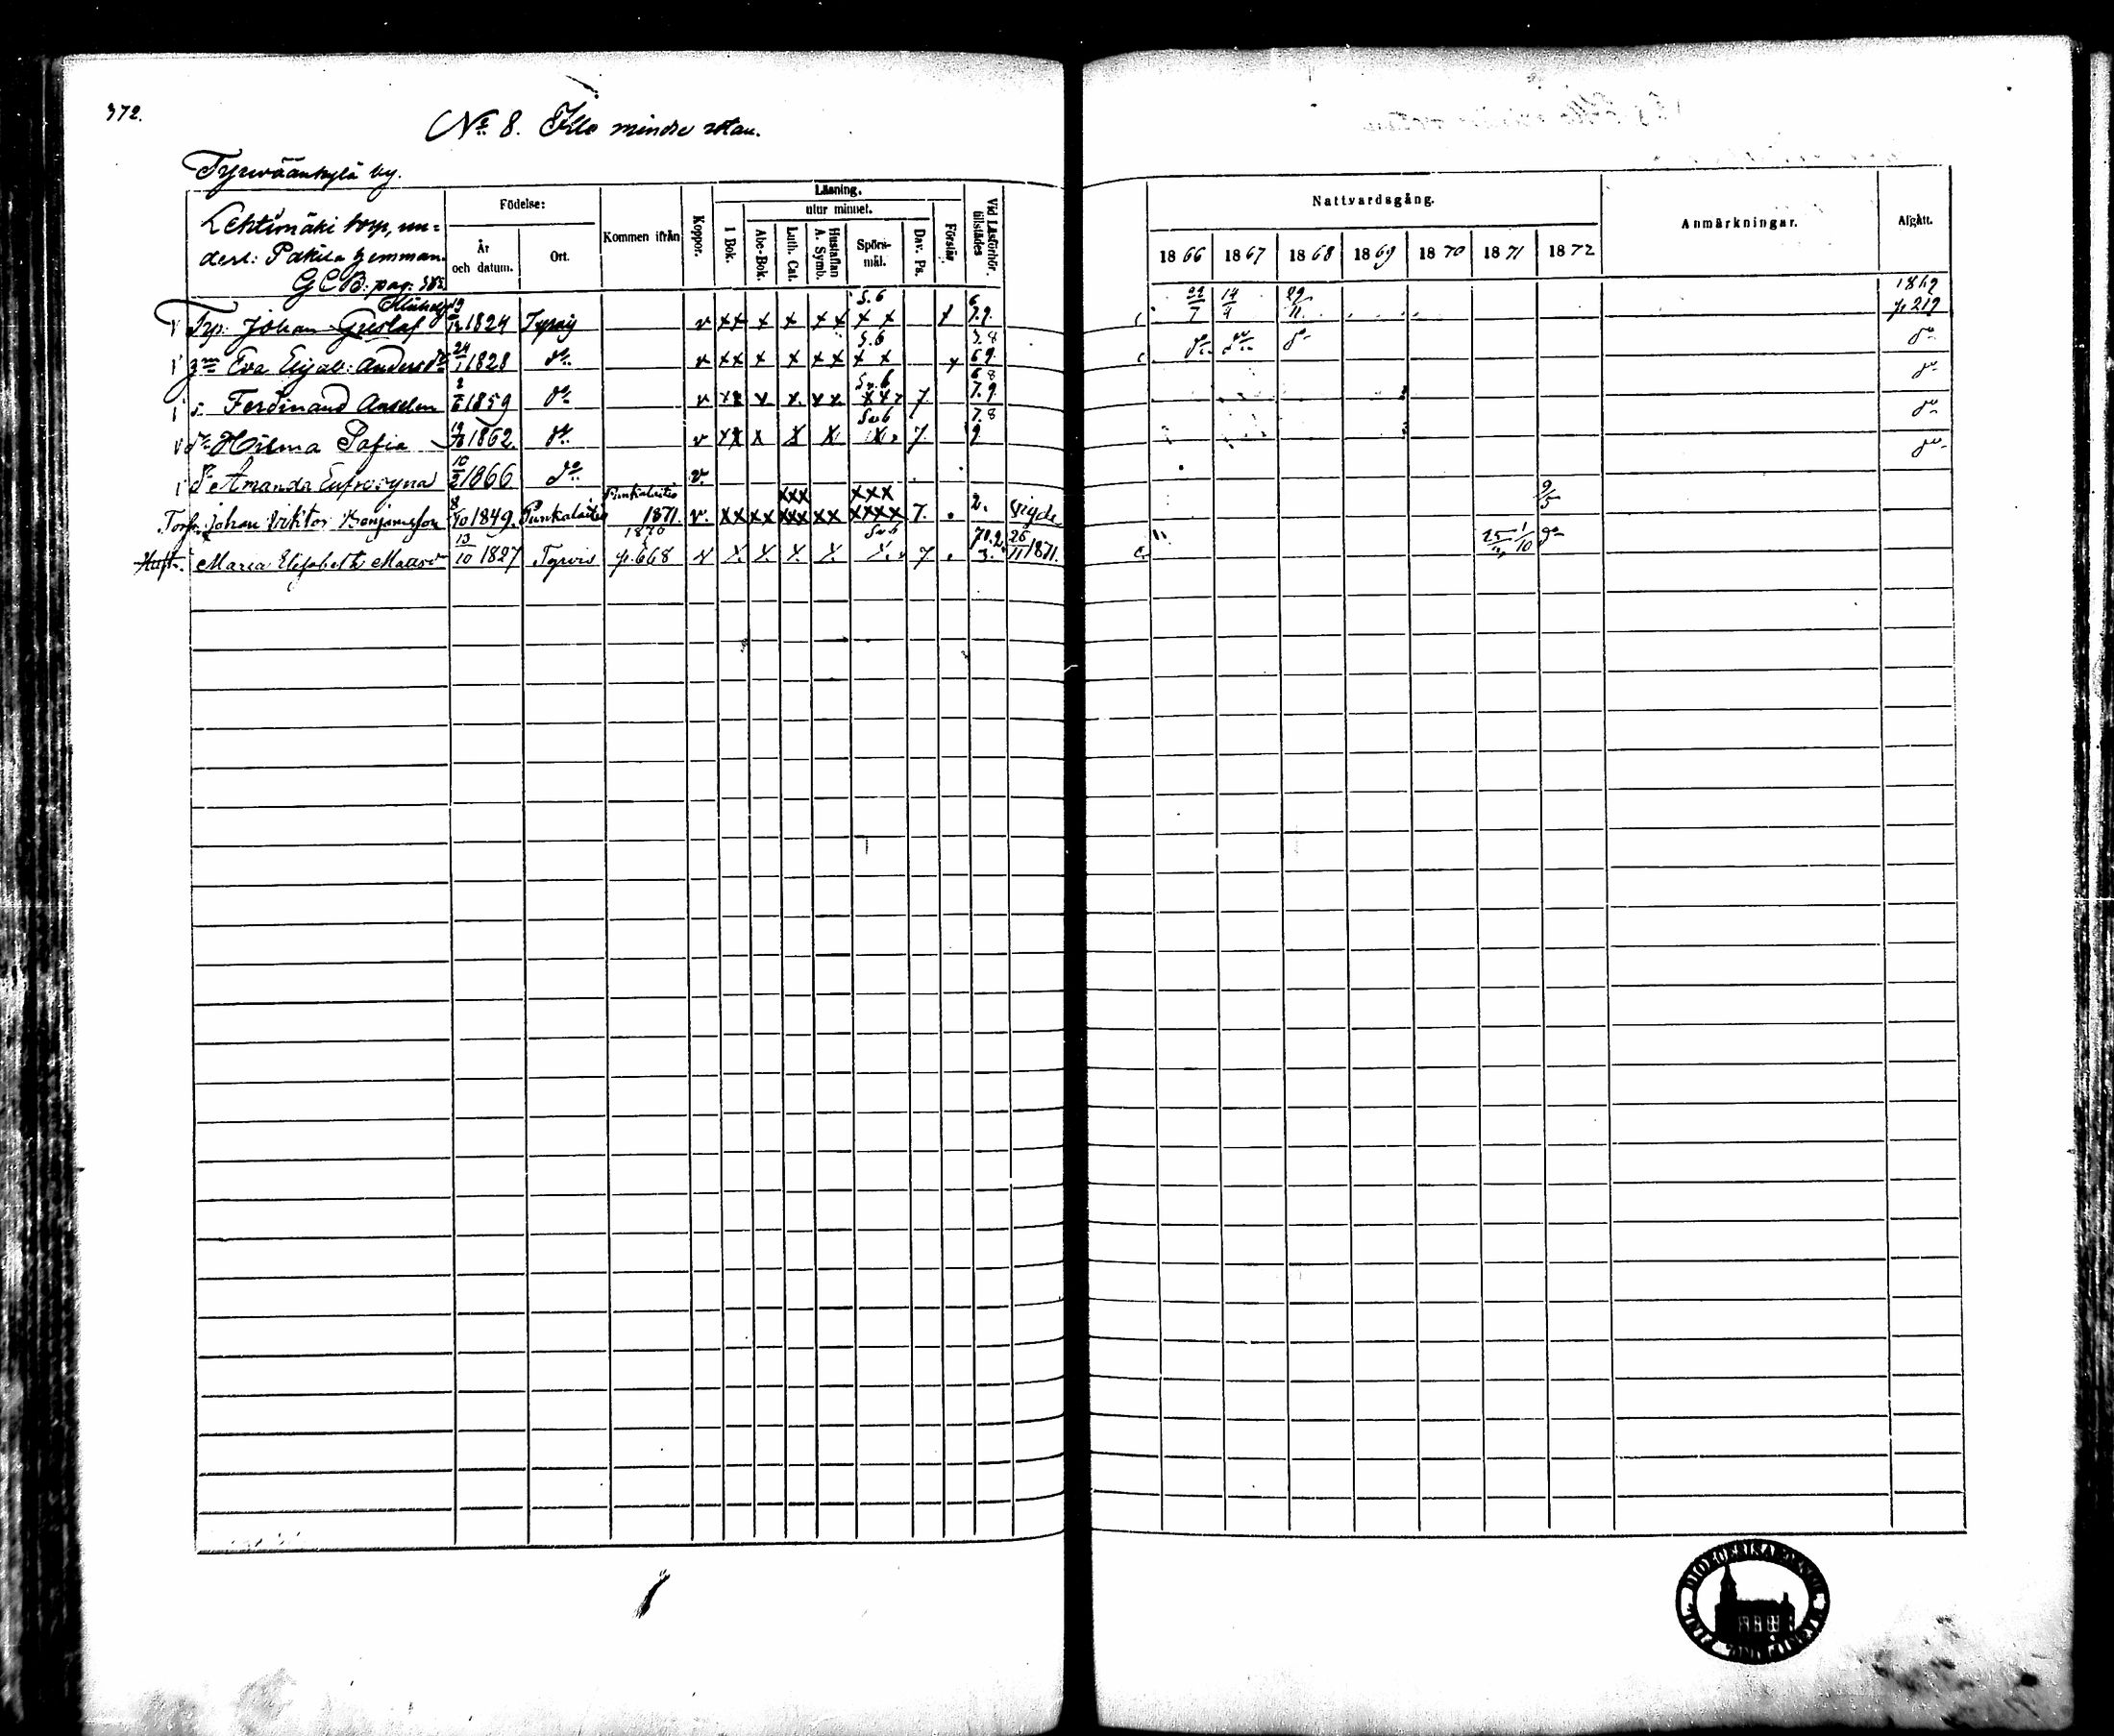 372.
No 8. Illo mindre rotan.
Tyrwäänkylä by.
Lehtimäki torp, un=
derl: Pakila hemman.
G C B: pag:
Födelse:
År och datum.
Ort.
Kommen ifrån
Koppor.
Läsning.
I Bok.
utur minnet.
Abc-Bok.
Luth. Cat.
Hustaflan A. Symb.
Spörs-mål.
Dav. Ps.
Förstår
Vid Läsförhör. tillstädes
Nattvardsgång.
1866 1867 1868 1869 1870 1871 1872
Anmärkningar.
Afgått.
Trp: Johan Gustaf 19/12 1824 v xx x x xx S.6 x x x 6 7.9. 22/7 14/4 29/11 1869 p. 219
Eva Elisab: Andersdr 24/1 1828 do v xx x x xx S.6 x x x 5.8 6 9. do do do do
s. Ferdinand Anselm 2/6 1859 do v xx x x. xx 7 6 8 7.9. do
dr Hilma Sofia 19/10 1862. do v xx x x x 7. 7.8 9 do
dr Amanda Eufrosyna 1866 do v. do
Torp. Johan Viktor Benjamsson 8/10 1849. Punkalaitio Punkalaitio 1871. v. xx xx xxx xxx xx xxx xxxx 7. 2. vigde 9/5
Maria Elisabeth Mattsdr 13/10 1827 Tyrvis 1870 p. 668 v x. x. x. x. 7 70.2. 3. 26/11 1871. 1/10 do